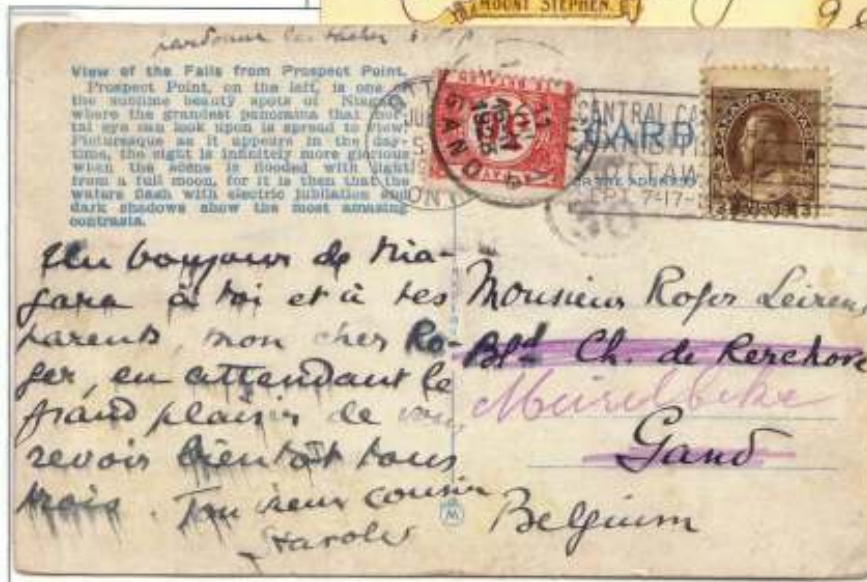 MOUNT STEPHEN.
pardonne les taches
View of the Falls from Prospect Point.
Prospect Point, on the left, is one of
the sublime beauty spots of Niagara
where the grandest panorama that mor-
tal eye can look upon is spread to view.
Picturesque as it appears in the day-
time, the sight is infinitely more glorious
when the scene is flooded with light
from a full moon, for it is then that the
waters flash with electric jubilation and
dark shadows show the most amazing
contrasts.
CENTRAL CA
CARD
OTTAWA
GAND
1923
CANADA POSTAGE
Un bonjour de Nia-
gara à toi et à tes
parents, mon cher Ro-
ger, en attendant le
grand plaisir de vous
revoir bientôt tous
trois. Ton vieux cousin
Monsieur Roger Leirens
Bld Ch. de Kerchove
Meirelbeke
Gand
Belgium